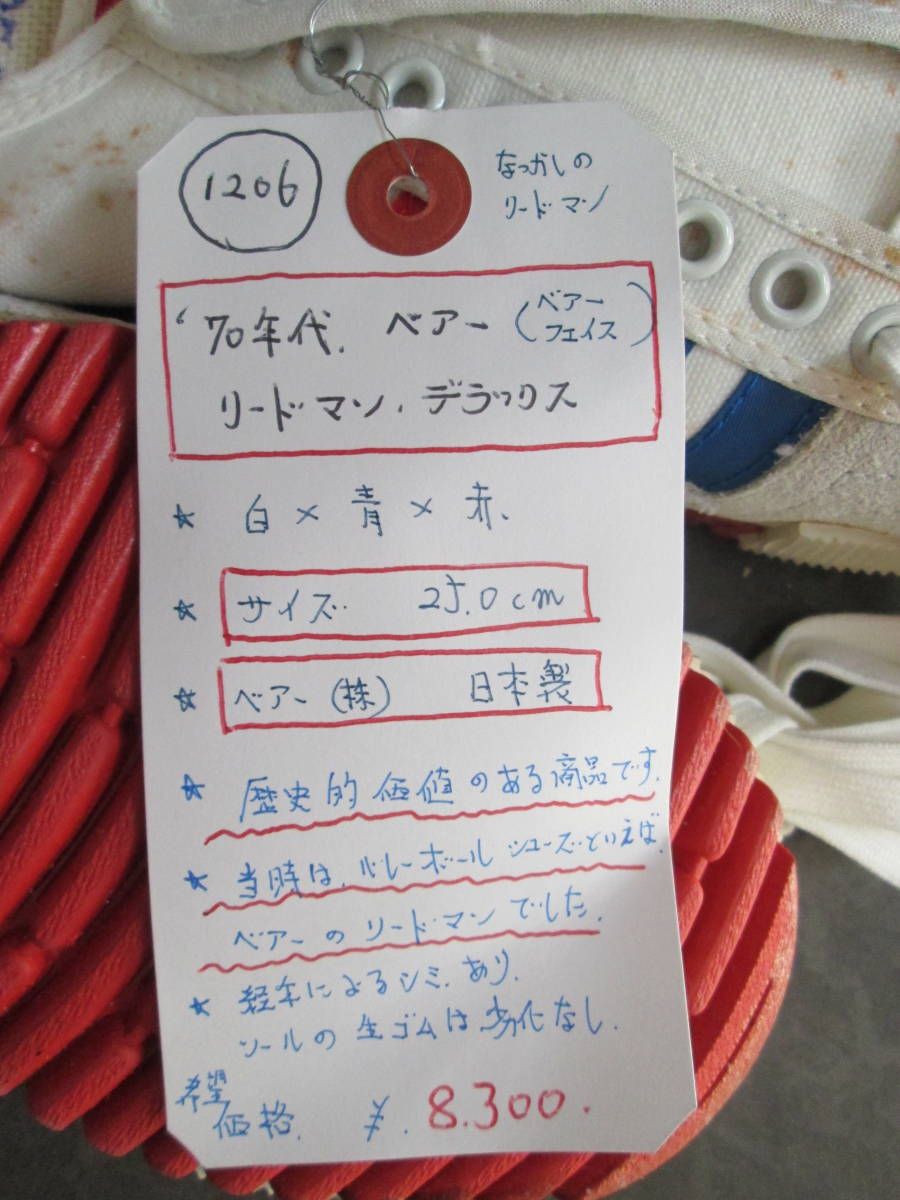 1206
なつかしの
リードマン
'70年代. ベアー (ベアーフェイス)
リードマン. デラックス
☆ 白×青×赤.
☆ サイズ. 25.0cm
☆ ベアー(株) 日本製
☆ 歴史的価値のある商品です.
☆ 当時は、バレーボールシューズといえば.
ベアーのリードマンでした.
☆ 経年によるシミ. あり.
ソールの生ゴムは劣化なし.
希望
価格. ¥. 8.300.